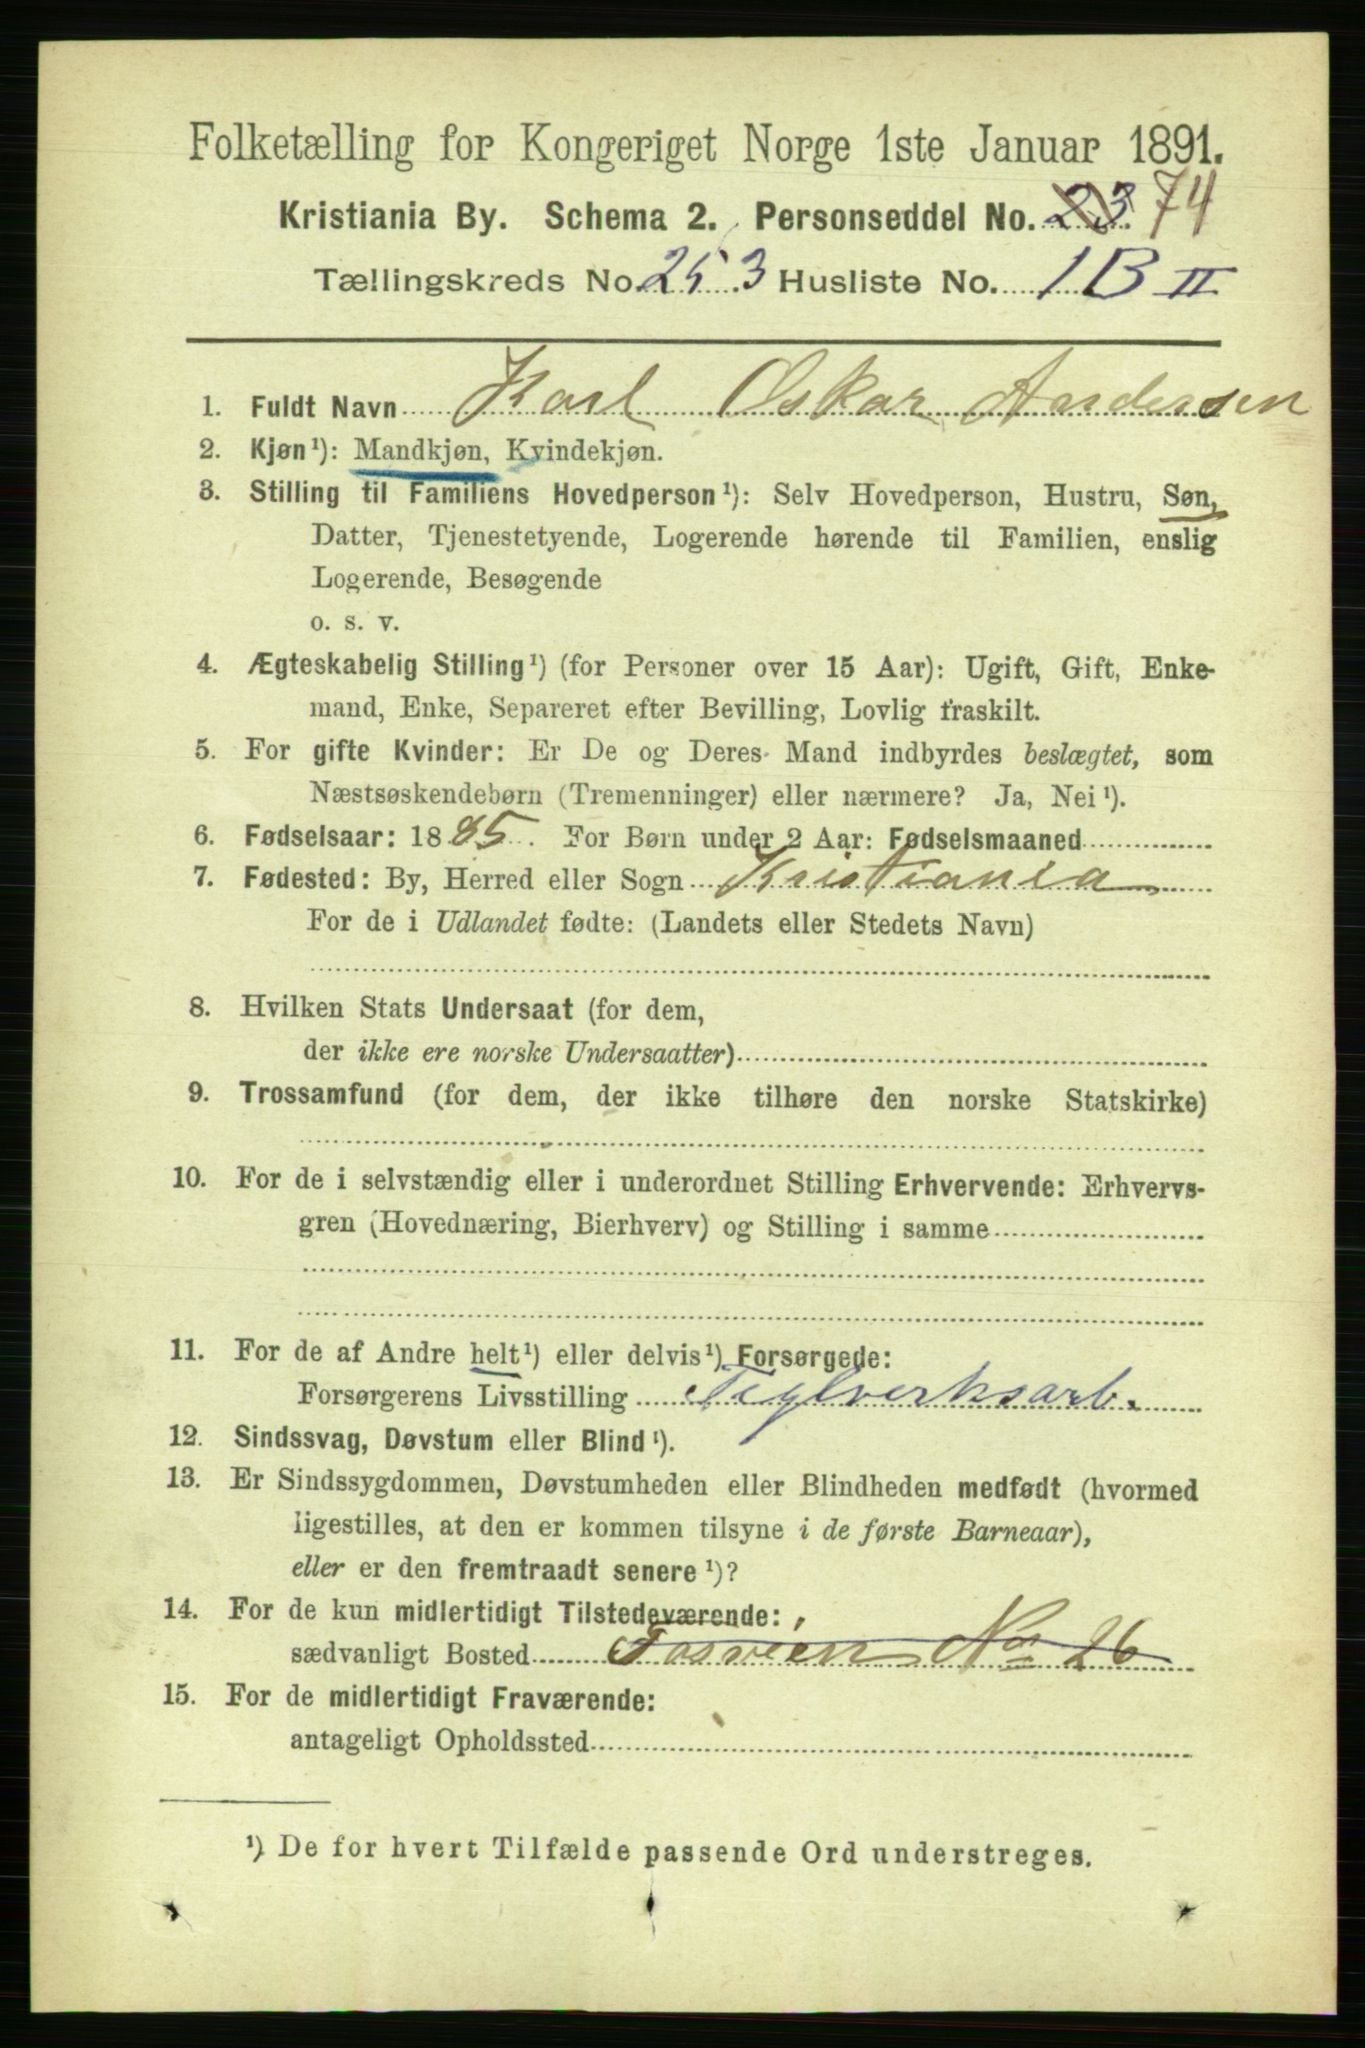 Folketælling for Kongeriget Norge 1ste Januar 1891.
Kristiania By. Schema 2. Personseddel No. 23 74
Tællingskreds No. 253 Husliste No. 1 B II
1. Fuldt Navn Karl Oskar Andersen
2. Kjøn¹): Mandkjøn, Kvindekjøn.
3. Stilling til Familiens Hovedperson¹): Selv Hovedperson, Hustru, Søn,
Datter, Tjenestetyende, Logerende hørende til Familien, enslig
Logerende, Besøgende
o. s. v.
4. Ægteskabelig Stilling¹) (for Personer over 15 Aar): Ugift, Gift, Enke-
mand, Enke, Separeret efter Bevilling, Lovlig fraskilt.
5. For gifte Kvinder: Er De og Deres Mand indbyrdes beslægtet, som
Næstsøskendebørn (Tremenninger) eller nærmere? Ja, Nei¹).
6. Fødselsaar: 1885. For Børn under 2 Aar: Fødselsmaaned
7. Fødested: By, Herred eller Sogn Kristiania
For de i Udlandet fødte: (Landets eller Stedets Navn)
8. Hvilken Stats Undersaat (for dem,
der ikke ere norske Undersaatter)
9. Trossamfund (for dem, der ikke tilhøre den norske Statskirke)
10. For de i selvstændig eller i underordnet Stilling Erhvervende: Erhvervs-
gren (Hovednæring, Bierhverv) og Stilling i samme
11. For de af Andre helt¹) eller delvis¹) Forsørgede:
Forsørgerens Livsstilling Teglverksarb.
12. Sindssvag, Døvstum eller Blind¹).
13. Er Sindssygdommen, Døvstumheden eller Blindheden medfødt (hvormed
ligestilles, at den er kommen tilsyne i de første Barneaar),
eller er den fremtraadt senere¹)?
14. For de kun midlertidigt Tilstedeværende:
sædvanligt Bosted No 26
15. For de midlertidigt Fraværende:
antageligt Opholdssted
¹) De for hvert Tilfælde passende Ord understreges.